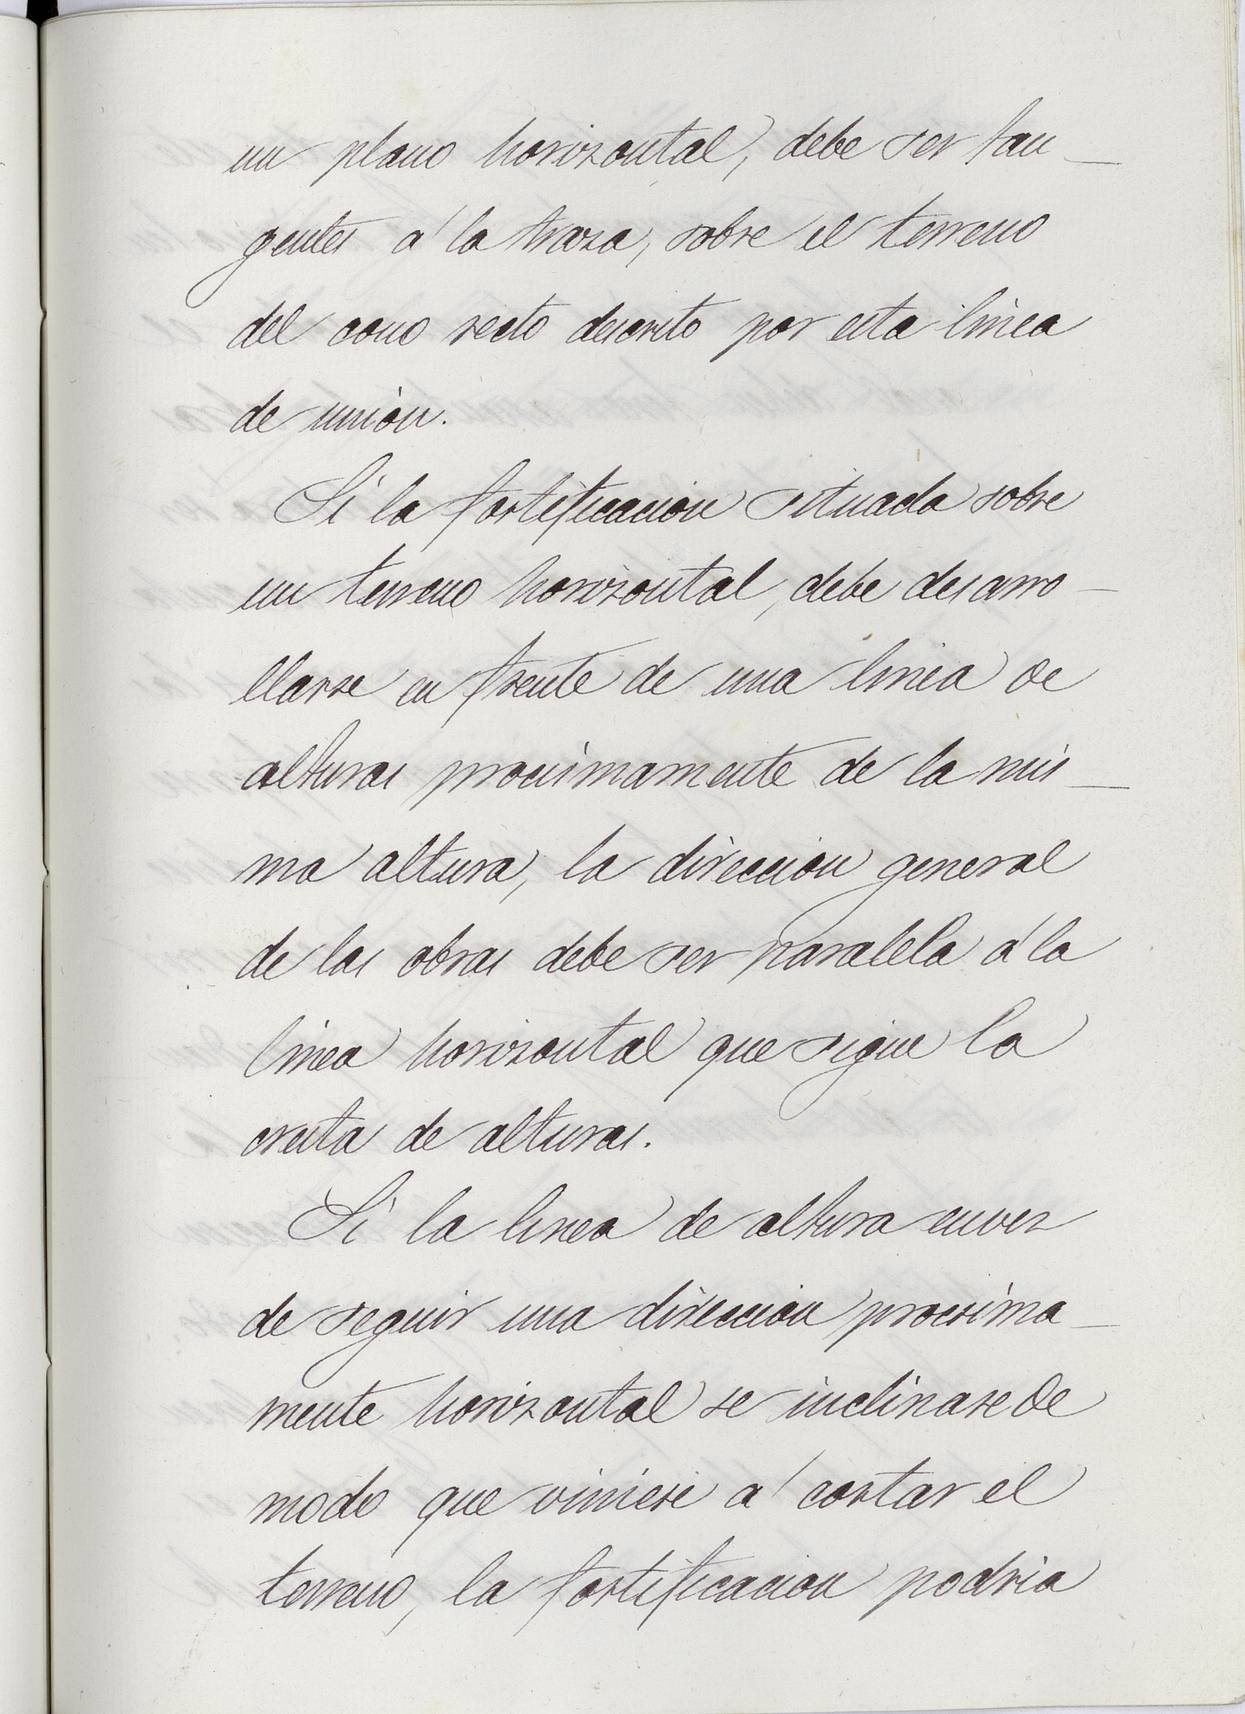 un plano horizontal, debe ser tan_
gentes á la traza, sobre el terreno
del cono recto descrito por esta línea
de unión.
Si la fortificacion situada sobre
un terreno horizontal, debe desarro_
llarse en frente de una linea de
alturas procsimamente de la mis_
ma altura, la direccion general
de las obras debe ser paralela á la
linea horizontal que sigue la
cresta de alturas.
Si la linea de altura en vez
de seguir una direccion procsima_
mente horizontal se inclinase de
modo que viniese á cortar el
terreno, la fortificacion podria